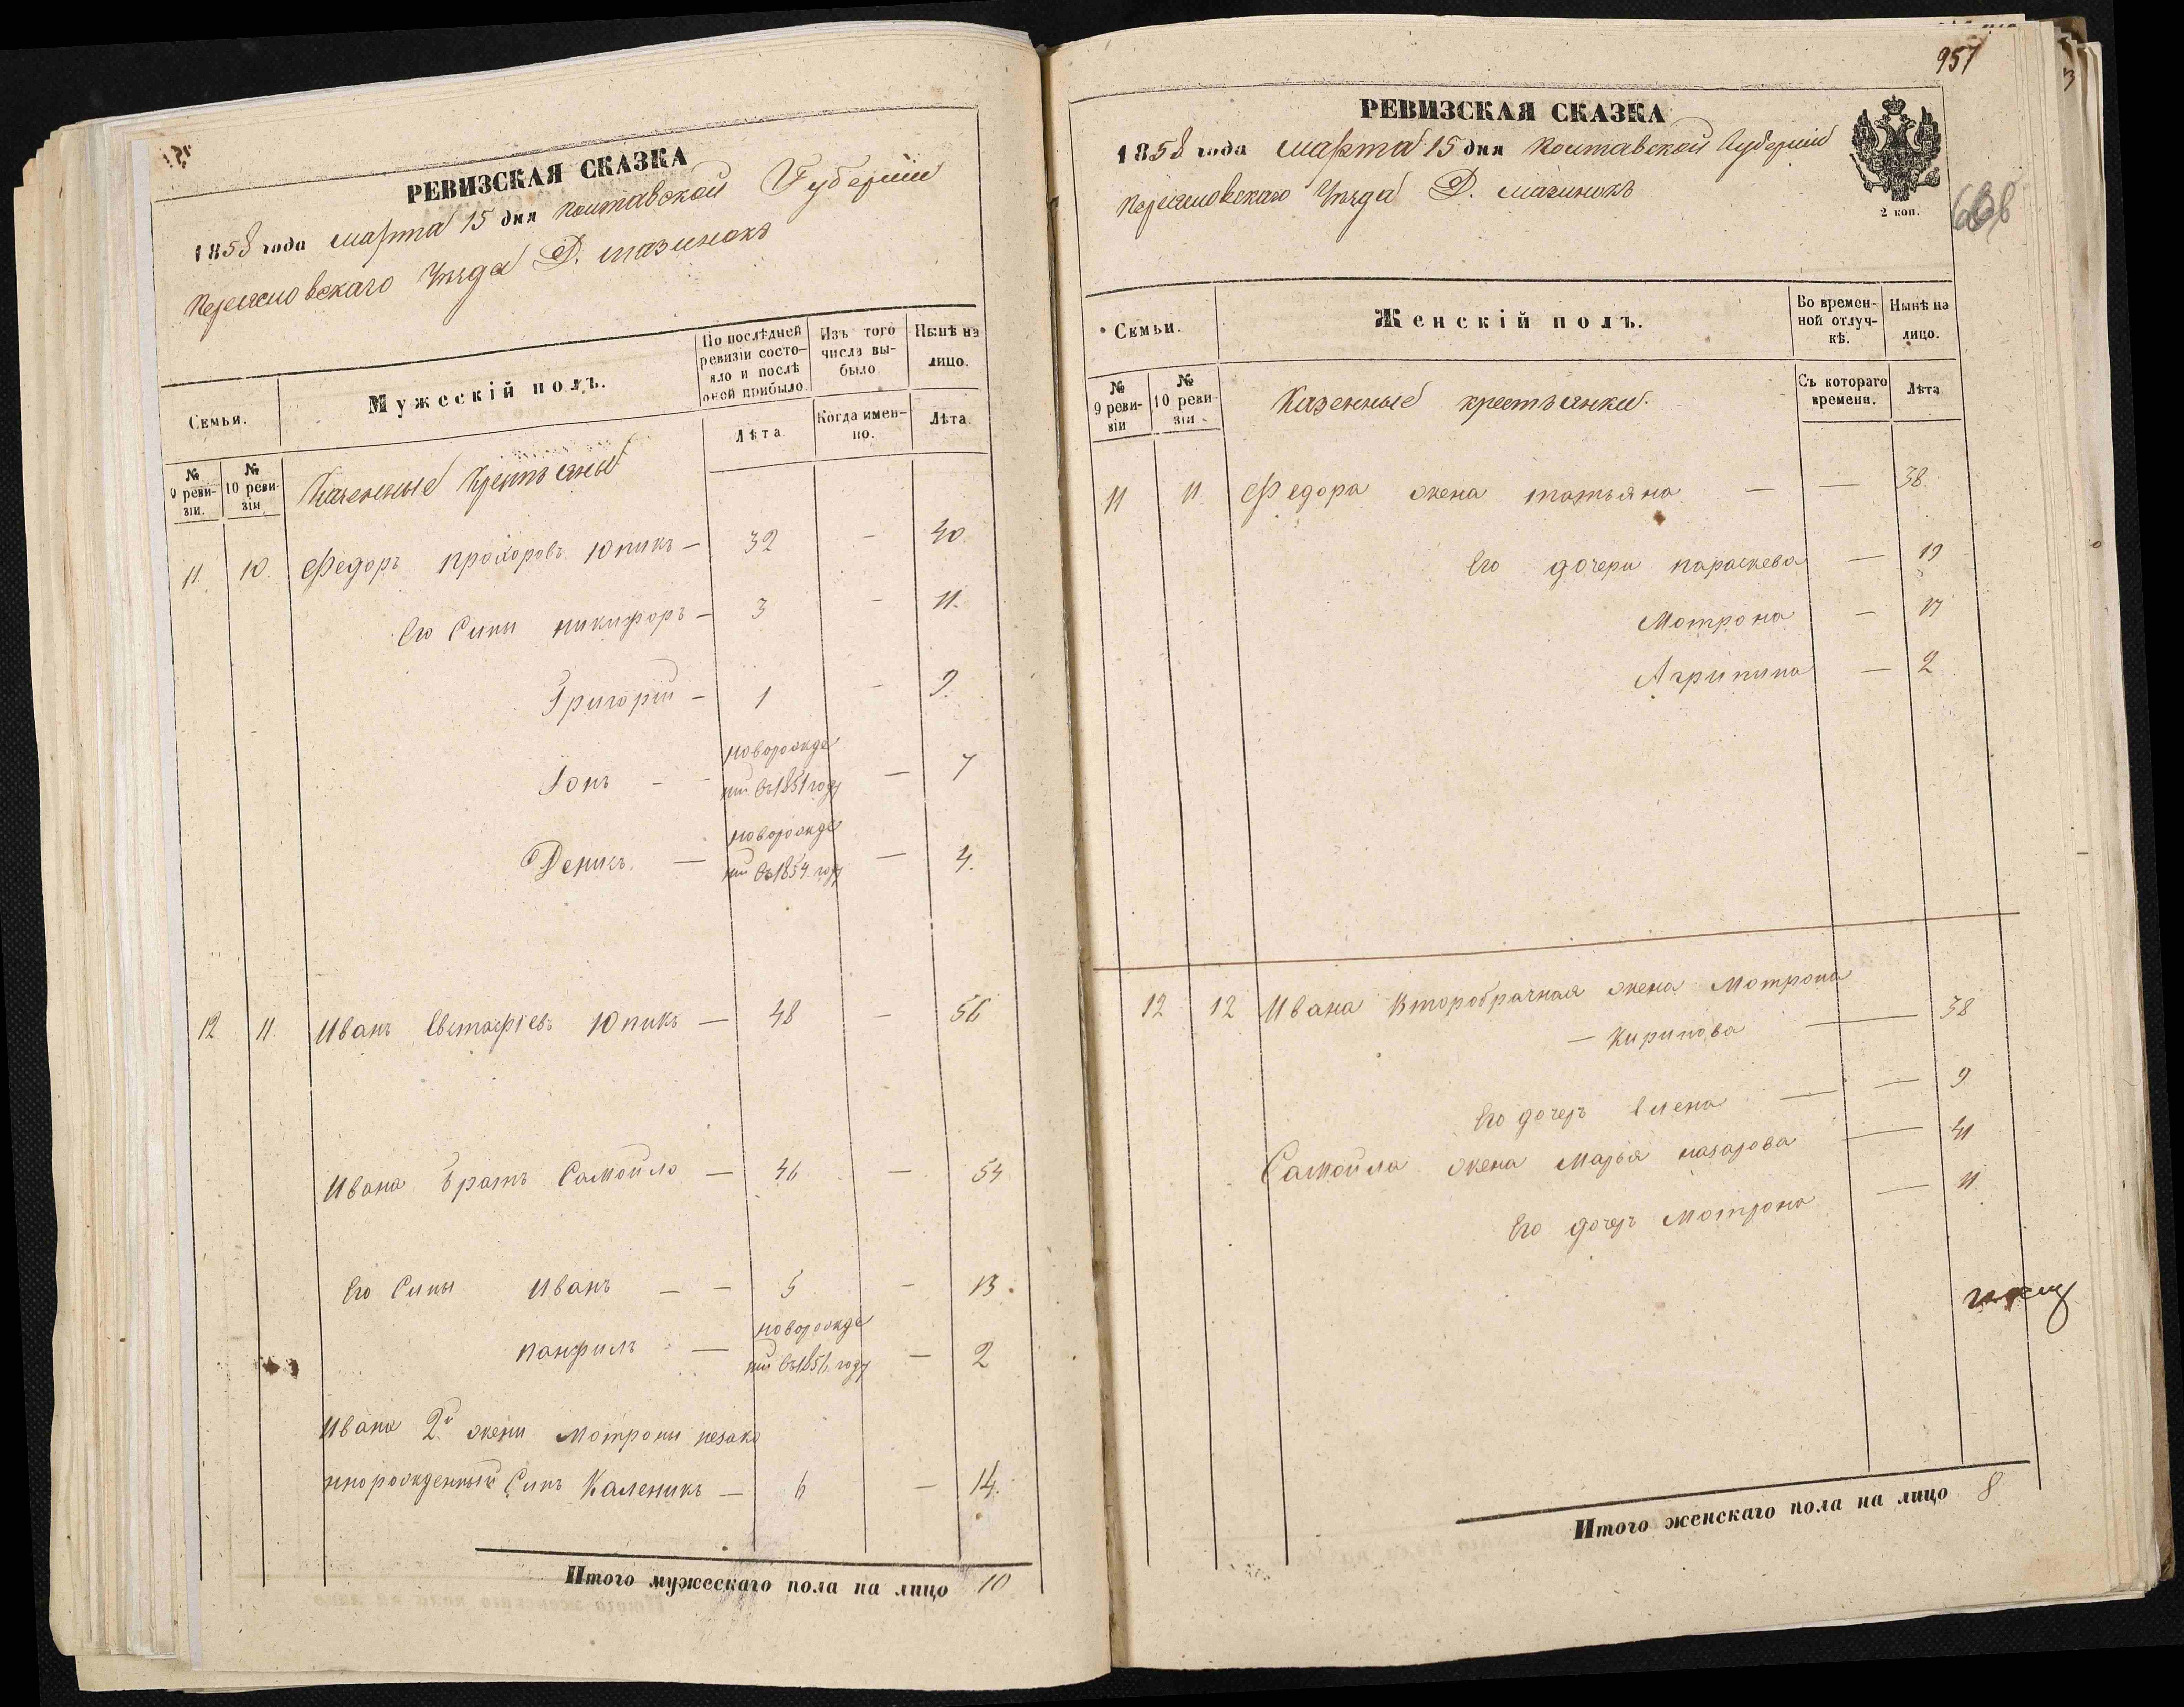 РЕВИЗСКАЯ СКАЗКА
1858 года марта 15 дня Полтавской Губерніи
Переяславскаго Уѣзда Д. мазинокъ
Семьи.
Мужескій полъ.
По послѣдней ревизіи состояло и послѣ оной прибыло.
Изъ того числа выбыло.
Нынѣ на лицо.
№ 9 ревизіи.
№ 10 ревизіи
Лѣта.
Когда именно.
Лѣта.
Казенные Крестьяны
11. 10. Федоръ прохоровъ Юпикъ — 32 — 40.
Его Сини никифоръ — 3 — 11.
Григорій — 1 — 9.
Іонъ — - новорожде
ній въ 1851 году — 7
Деникъ. — новорожде
ній въ 1854 году — 4.
12 11. Иванъ Евстафіевъ Юпикъ — 48 — 56
Ивана братъ Самойло — 46 — 54
Его Сины Иванъ — — 5 — 13.
панфилъ — новорожде
ній въ 1856 году — 2
Ивана 2й жени Мотроны незако
ннорожденный Синъ Каленикъ — 6 — 14.
Итого мужескаго пола на лицо 10
957
РЕВИЗСКАЯ СКАЗКА
1858 года марта 15 дня Полтавской Губерніи
Переяславскаго Уѣзда Д. мазинокъ
2 коп.
Семьи.
Женскій полъ.
Во временной отлучкѣ.
Нынѣ на лицо.
№ 9 ревизіи
№ 10 ревизіи
Съ котораго времени.
Лѣта
Казенные крестьянки.
11 11. Федора жена татьяна — — 38.
Его дочери параскева — 19
Мотрона — 17
Агрипина — 2
12 12 Ивана Второбрачная жена Мотрона
— Кирилова — 38
Его дочеръ Елена — — 9
Самойла жена Марья назарова — 41
Его дочеръ Мотрона — 11.
Итого женскаго пола на лицо 8